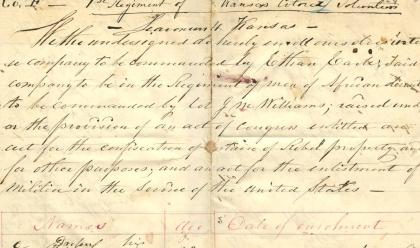 Co. F — 1st Regiment of Kansas Colored Volunteers
— Leavenworth Kansas —
We the undersigned do hereby enroll ourselves into
a company to be commanded by Ethan Earle, said
company to be in the Regiment of men of African
to be commanded by Col J. M. Williams; raised
or the provision of an act of Congress entitled an
act for the confiscation of Rebel property, an
for other purposes, and an act for the enlistment of
Militia in the service of the United States —
Names age Date of enrolment